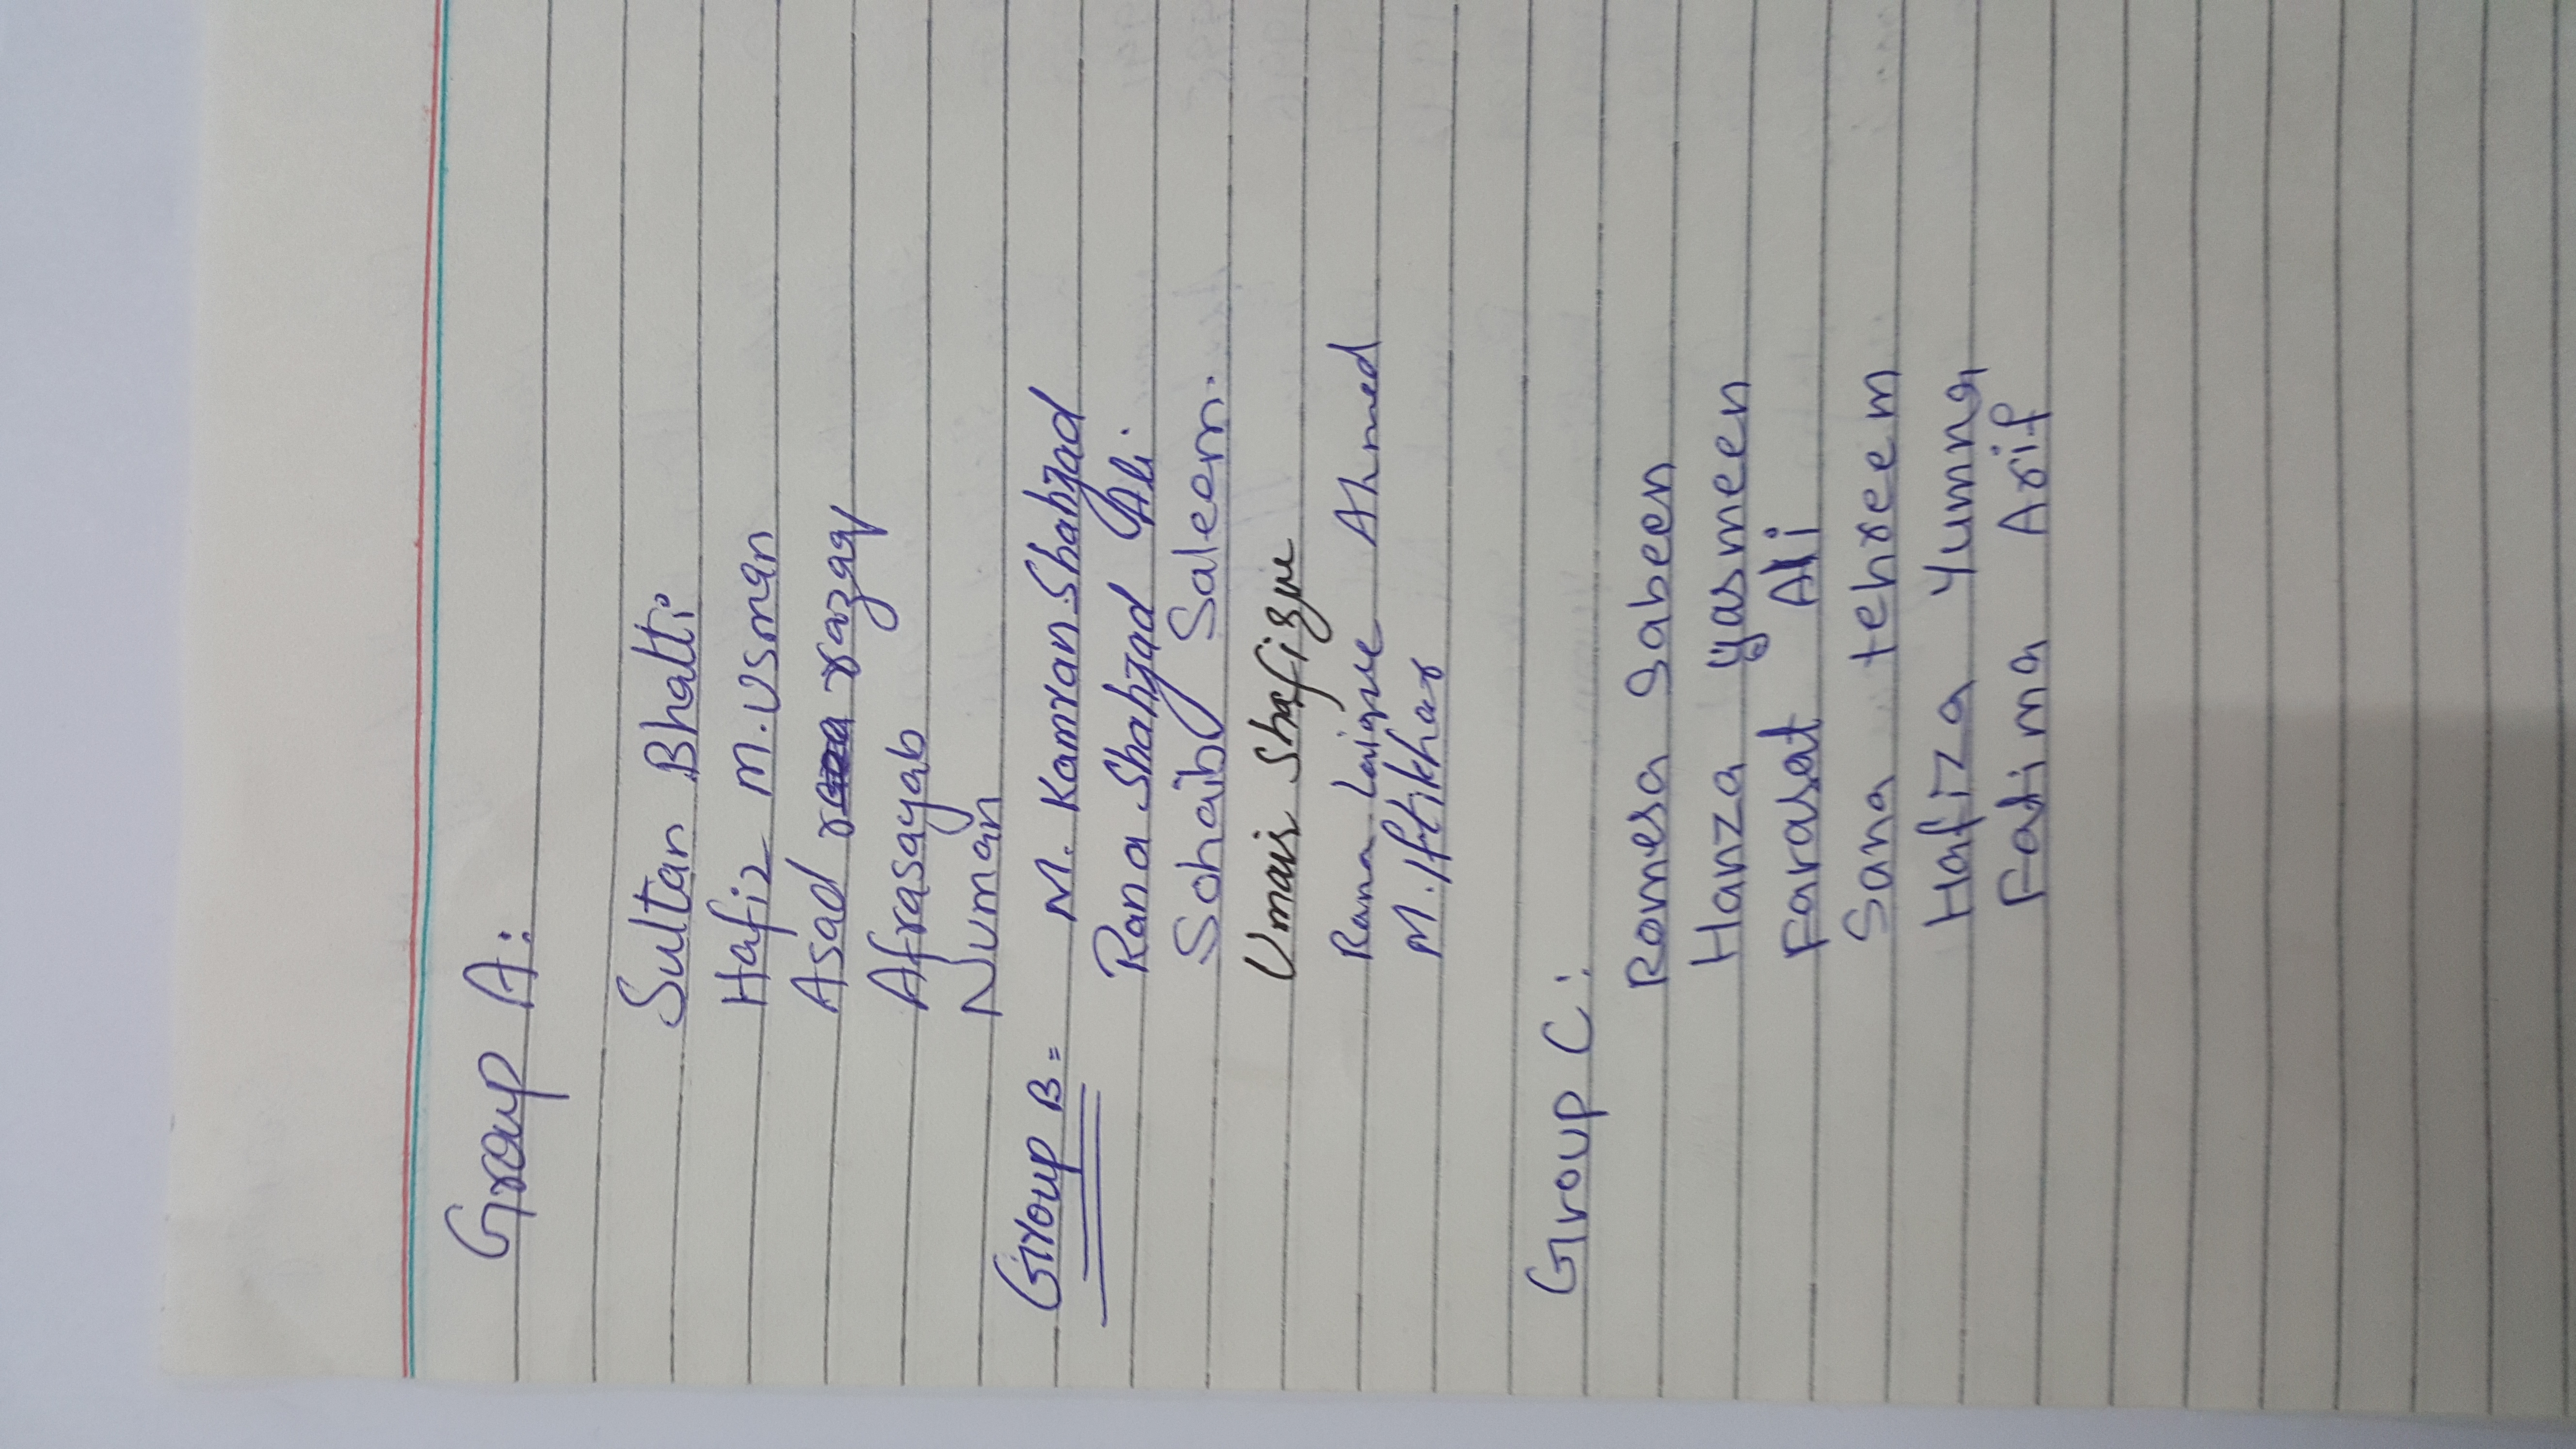 Group A:
Sultan Bhatti
Hafiz M. Usman
Asad razaq
Afrasayab
Numan
Group B = M. Kamran Shahzad
Rana Shahzad Ali.
Sohaib Saleem.
Umair Shafique
Rana Laique Ahmed
M. Iftikhar
Group C:
Romesa Sabeen
Hanza yasmeen
Farasat Ali
Sana tehreem
Hafiza Yumna
Fatima Arif